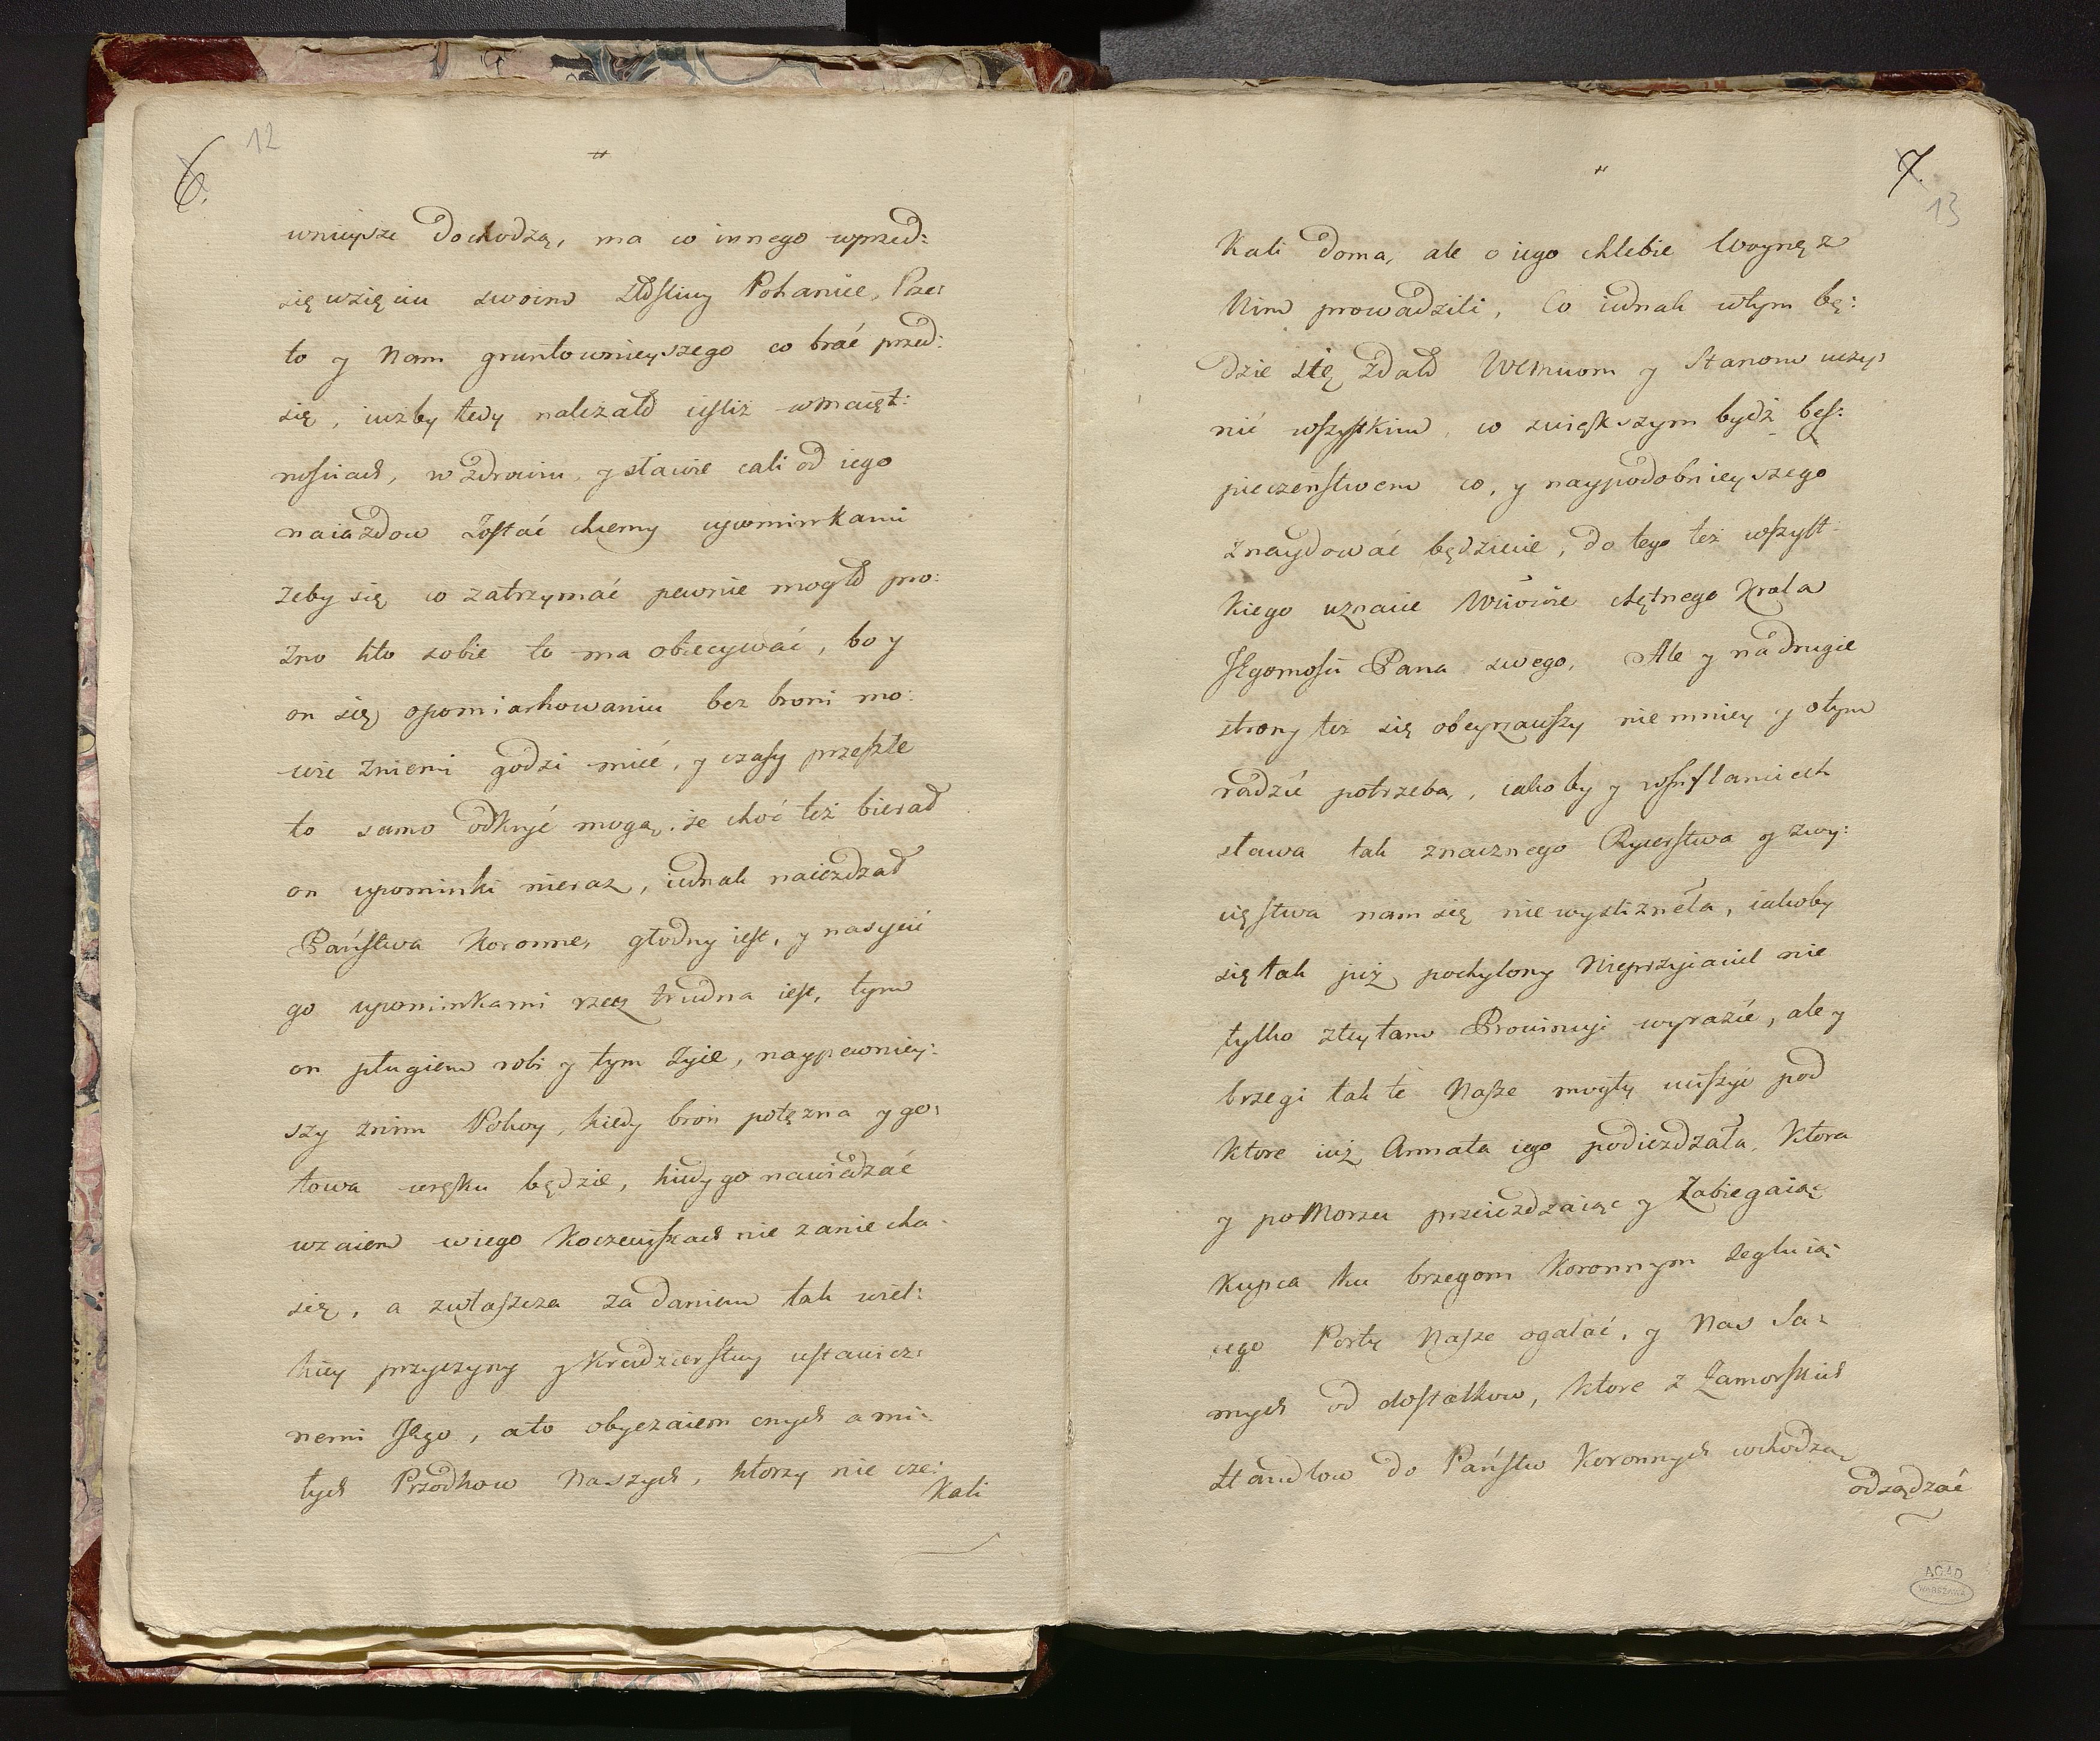 6.
12
wnieysze dochodzą, ma co innego wprzed:
sięwzięciu swoim złosliwy Pohaniec, Prze:
to y Nam gruntownieyszego co brać przed:
się, iużby tedy należało ieśliż wmaięt:
nościach, w zdrowiu, y sławie cali od iego
naiazdow zostać chcemy upominkami
żeby się co zatrzymać pewnie mogło pro:
żno kto sobie to ma obiecywać, bo y
on się opomiarkowaniu bez broni mo:
wić zniemi godzi mieć, y czasy przeszłe
to samo odkryć mogą, że choć też bierał
on upominki nieraz, iednak naieżdzał
Państwa Koronne, głodny iest, y nasycić
go upominkami rzecz trudna iest, tym
on pługiem robi y tym żyie, naypewniey:
szy znim Pokoy, kiedy broń potężna y go:
towa wręku będzie, kiedy go nawiedzać
wzaiem wiego Koczewiskach nie zaniecha
się, a zwłaszcza za daniem tak wiel:
kiey przyczyny y Kradzierstwy ustawicz:
nemi Jego, a to obyczaiem cnych a mi:
łych Przodkow Naszych, ktorzy nie cze:
Kali
7.
13
Kali doma, ale o iego chlebie Woynę z
Nim prowadzili, Co iednak wtym bę:
dzie się zdało WCMciom y Stanom uczy:
nić wszystkim, co zwiększym bydź bes:
pieczeństwem co, y naypodobnieyszego
znaydować będziecie, do tego też wszyst:
kiego uznacie Wciowie chętnego Krola
JEgomości Pana swego. Ale y na drugie
strony też się obeyrzawszy niemniey y otym
radzić potrzeba, iakoby y wInflanciech
sława tak znacznego Rycerstwa y zwy:
cięstwa nam się niewyslizneła, iakoby
się tak już pochylony Nieprzyiaciel nie
tylko ztey tam Prowincyi wyrazić, ale y
brzegi tak te Nasze mogły uciszyć pod
ktore iuż Armata iego podieżdzała, Ktora
y poMorzu przeieżdzaiąc y Zabiegaiąc
Kupca ku brzegom Koronnym żegluią:
cego Porty Nasze ogałać, y Nas Sa:
mych od dostatkow, ktore z Zamorskich
Handlow do Państw Koronnych wchodzą
odsądzać
AGAD
WARSZAWA